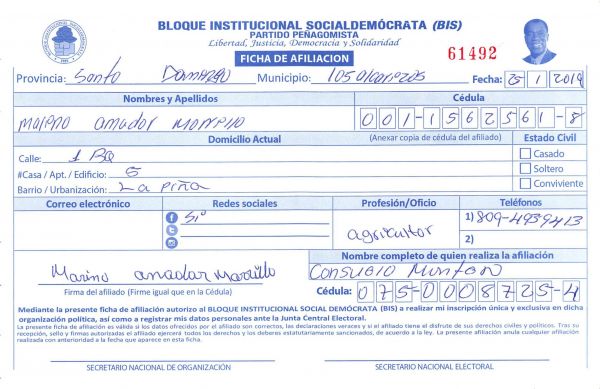 BLOQUE INSTITUCIONAL SOCIALDEMÓCRATA (BIS)
PARTIDO PEÑAGOMISTA
Libertad, Justicia, Democracia y Solidaridad
FICHA DE AFILIACION
61492
Provincia: Santo Domingo Municipio: Fecha: 25 1 2019
Nombres y Apellidos Cédula
amador 001-1562561-8
Domicilio Actual (Anexar copia de cédula del afiliado) Estado Civil
Calle: 1 Casado
#Casa / Apt. / Edificio: 5 Soltero
Barrio / Urbanización: La piña Conviviente
Correo electrónico Redes sociales Profesión/Oficio Teléfonos
Si agricultor 1) 809-4939413
2)
Nombre completo de quien realiza la afiliación
Marino amador Consuelo
Firma del afiliado (Firme igual que en la Cédula) Cédula: 075-0008725-4
Mediante la presente ficha de afiliación autorizo al BLOQUE INSTITUCIONAL SOCIAL DEMÓCRATA (BIS) a realizar mi inscripción única y exclusiva en dicha
organización política, así como a registrar mis datos personales ante la Junta Central Electoral.
La presente ficha de afiliación es válida si los datos ofrecidos por el afiliado son correctos, las declaraciones veraces y si el afiliado tiene el disfrute de sus derechos civiles y políticos. Tras su
recepción, sello y firmas autorizadas el afiliado ejercerá todos los derechos y los deberes estatutariamente sancionados, de acuerdo a la ley. La presente afiliación anula cualquier afiliación
realizada con anterioridad a la fecha que aparece en esta ficha.
SECRETARIO NACIONAL DE ORGANIZACIÓN SECRETARIO NACIONAL ELECTORAL